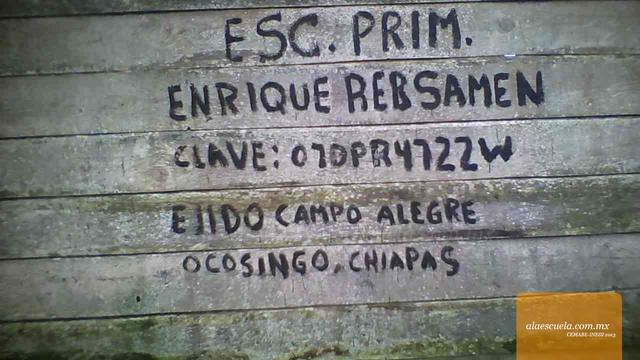 ESC. PRIM.
ENRIQUE REBSAMEN
CLAVE: 07DPR4722W
EJIDO CAMPO ALEGRE
OCOSINGO, CHIAPAS
alaescuela.com.mx
CEMABE-INEGI 2013